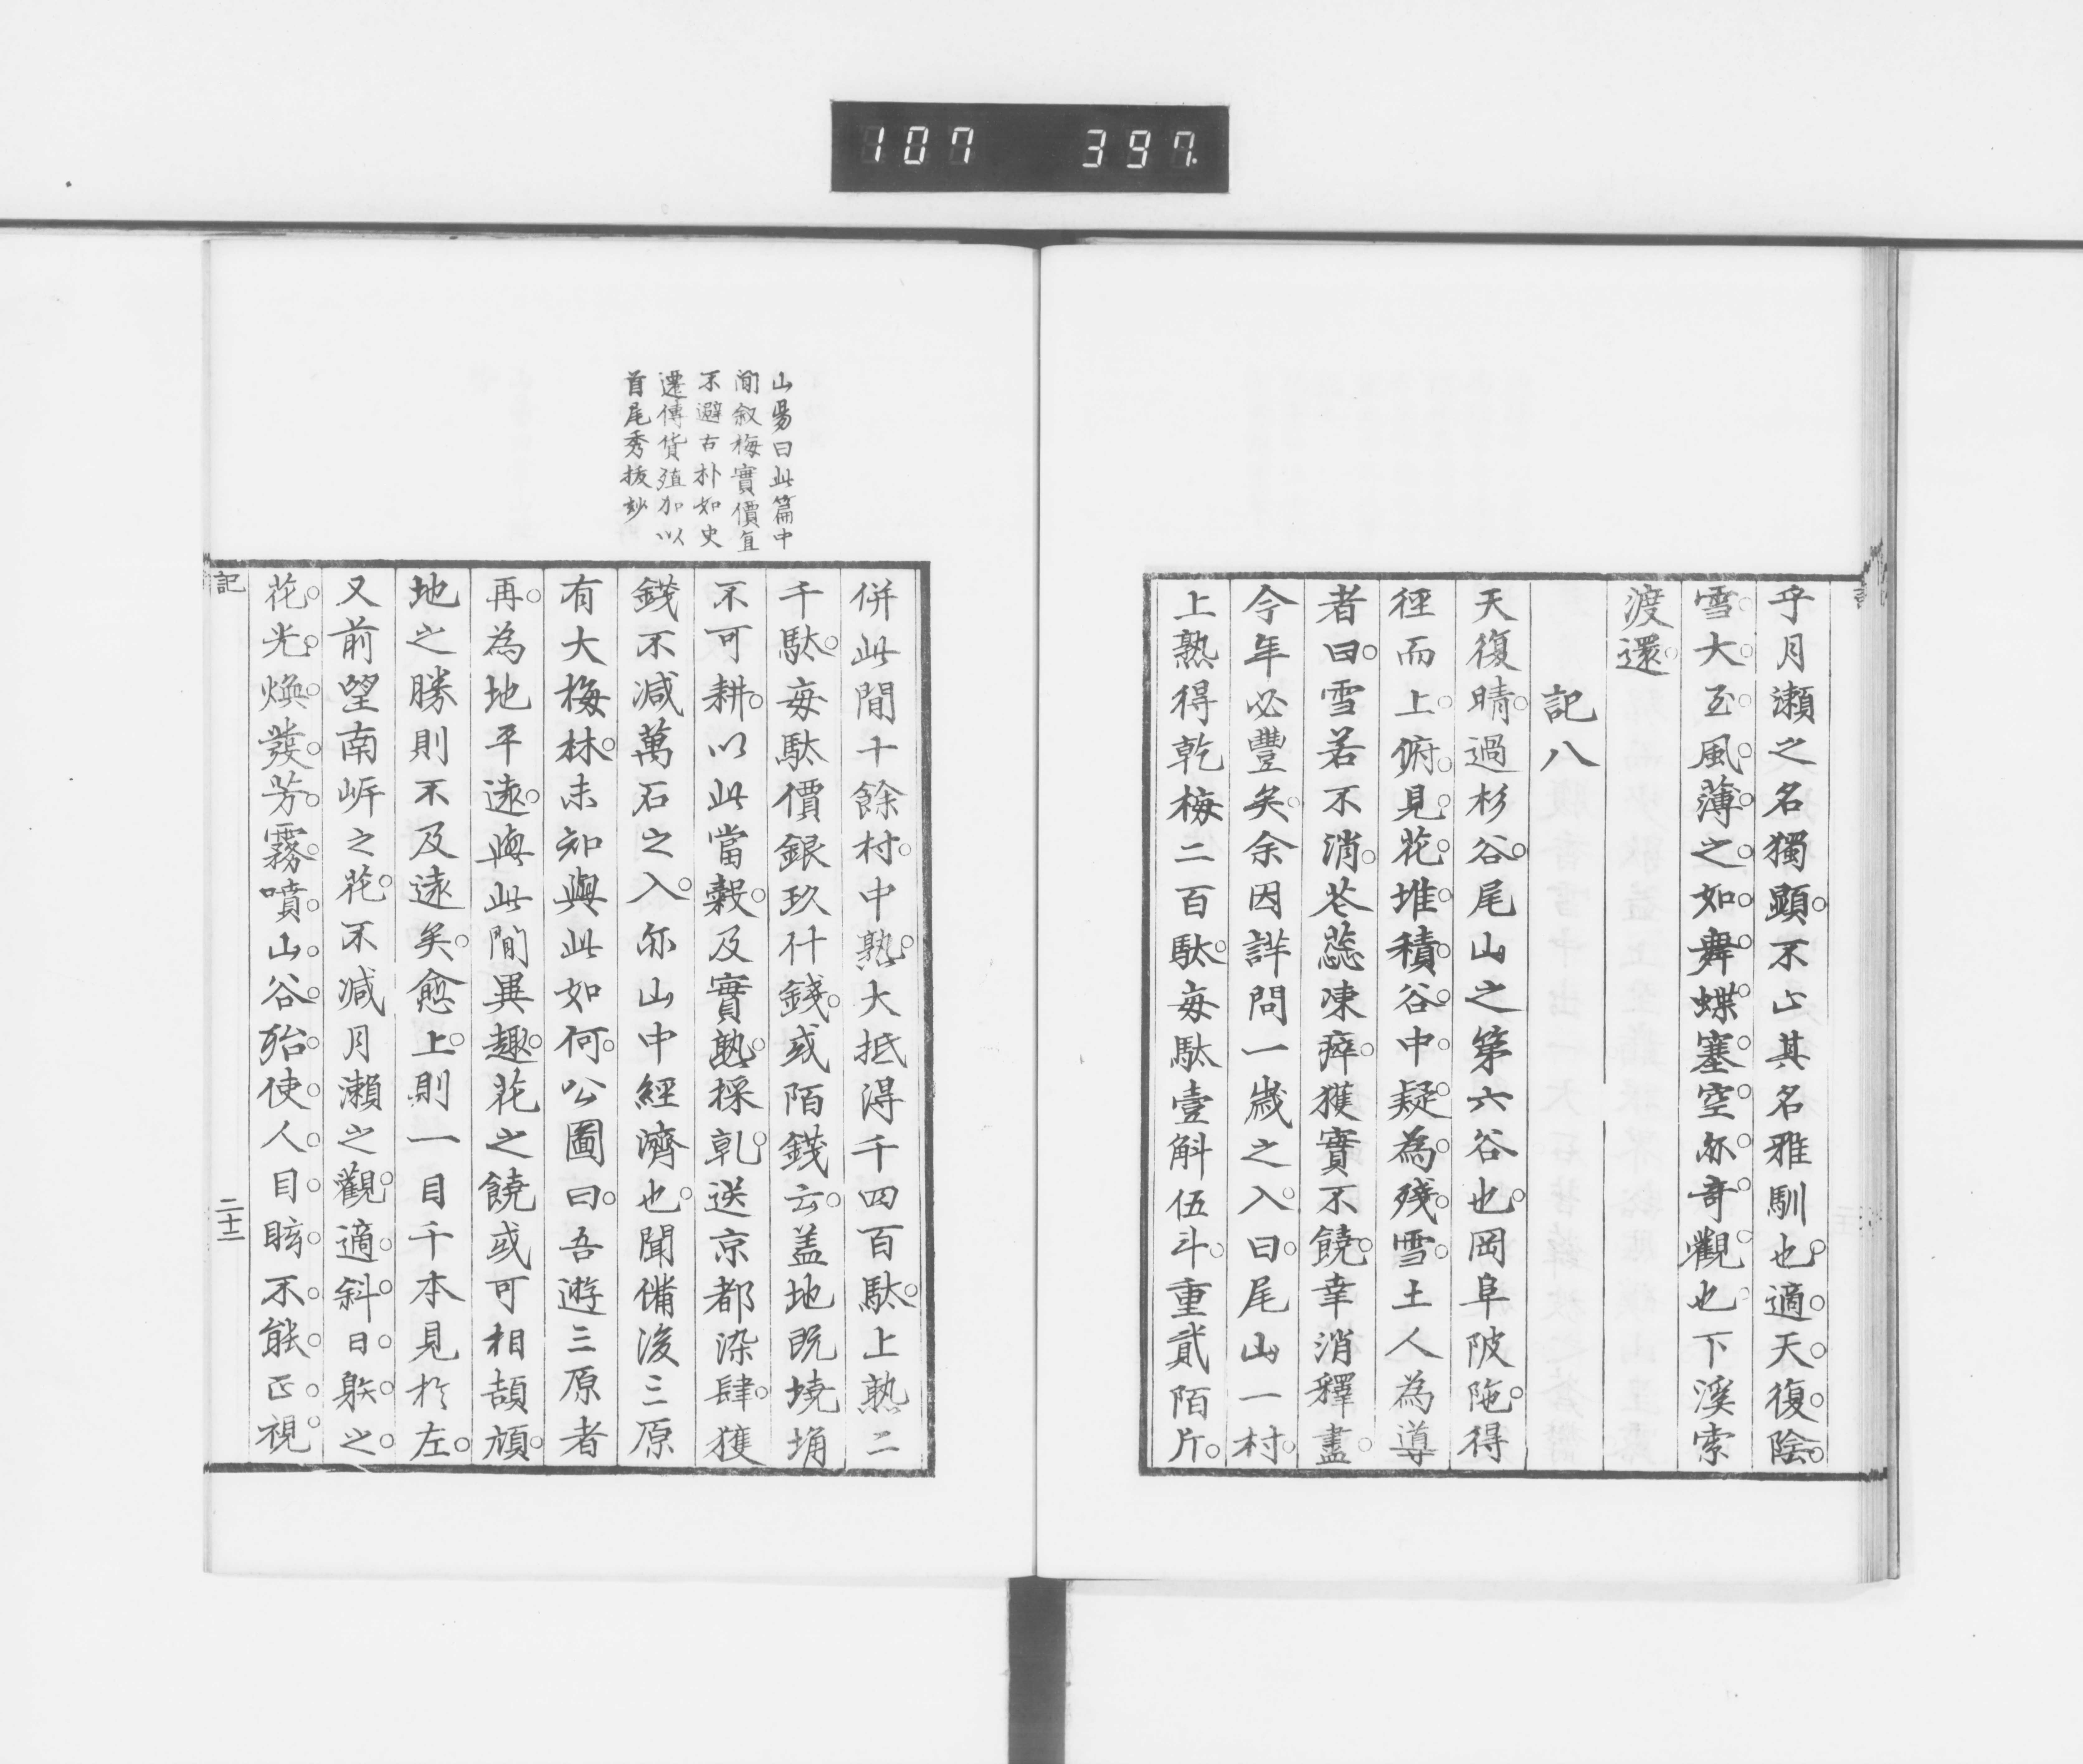 107 397
乎月瀬之名獨顯不止其名雅馴也適天復陰
雪大至風薄之如舞蝶塞空亦奇觀也下溪索
渡還
記八
天復晴過杉谷尾山之第六谷也岡阜陂陁得
徑而上俯見花堆積谷中疑為殘雪土人為導
者曰雪若不消花蕊凍瘁獲實不饒幸消釋盡
今年必豐矣余因詳問一歲之入曰尾山一村
上熟得乾梅二百駄每駄壹斛伍斗重貳陌片
山陽曰此篇中
間叙梅實價直
不避古朴如史
遷傳貨殖加以
首尾秀拔妙
併此間十餘村中熟大抵得千四百駄上熟二
千駄每駄價銀玖什錢或陌錢云盖地既墝埆
不可耕以此當穀及實熟採乹送京都染肆獲
錢不減萬石之入亦山中經濟也聞備後三原
有大梅林未知與此如何公圖曰吾遊三原者
再為地平遠與此間異趣花之饒或可相頡頏
地之勝則不及遠矣愈上則一目千本見於左
又前望南岍之花不減月瀬之觀適斜日躲之
花光煥發芳霧噴山谷殆使人目眩不能正視
記
二十二